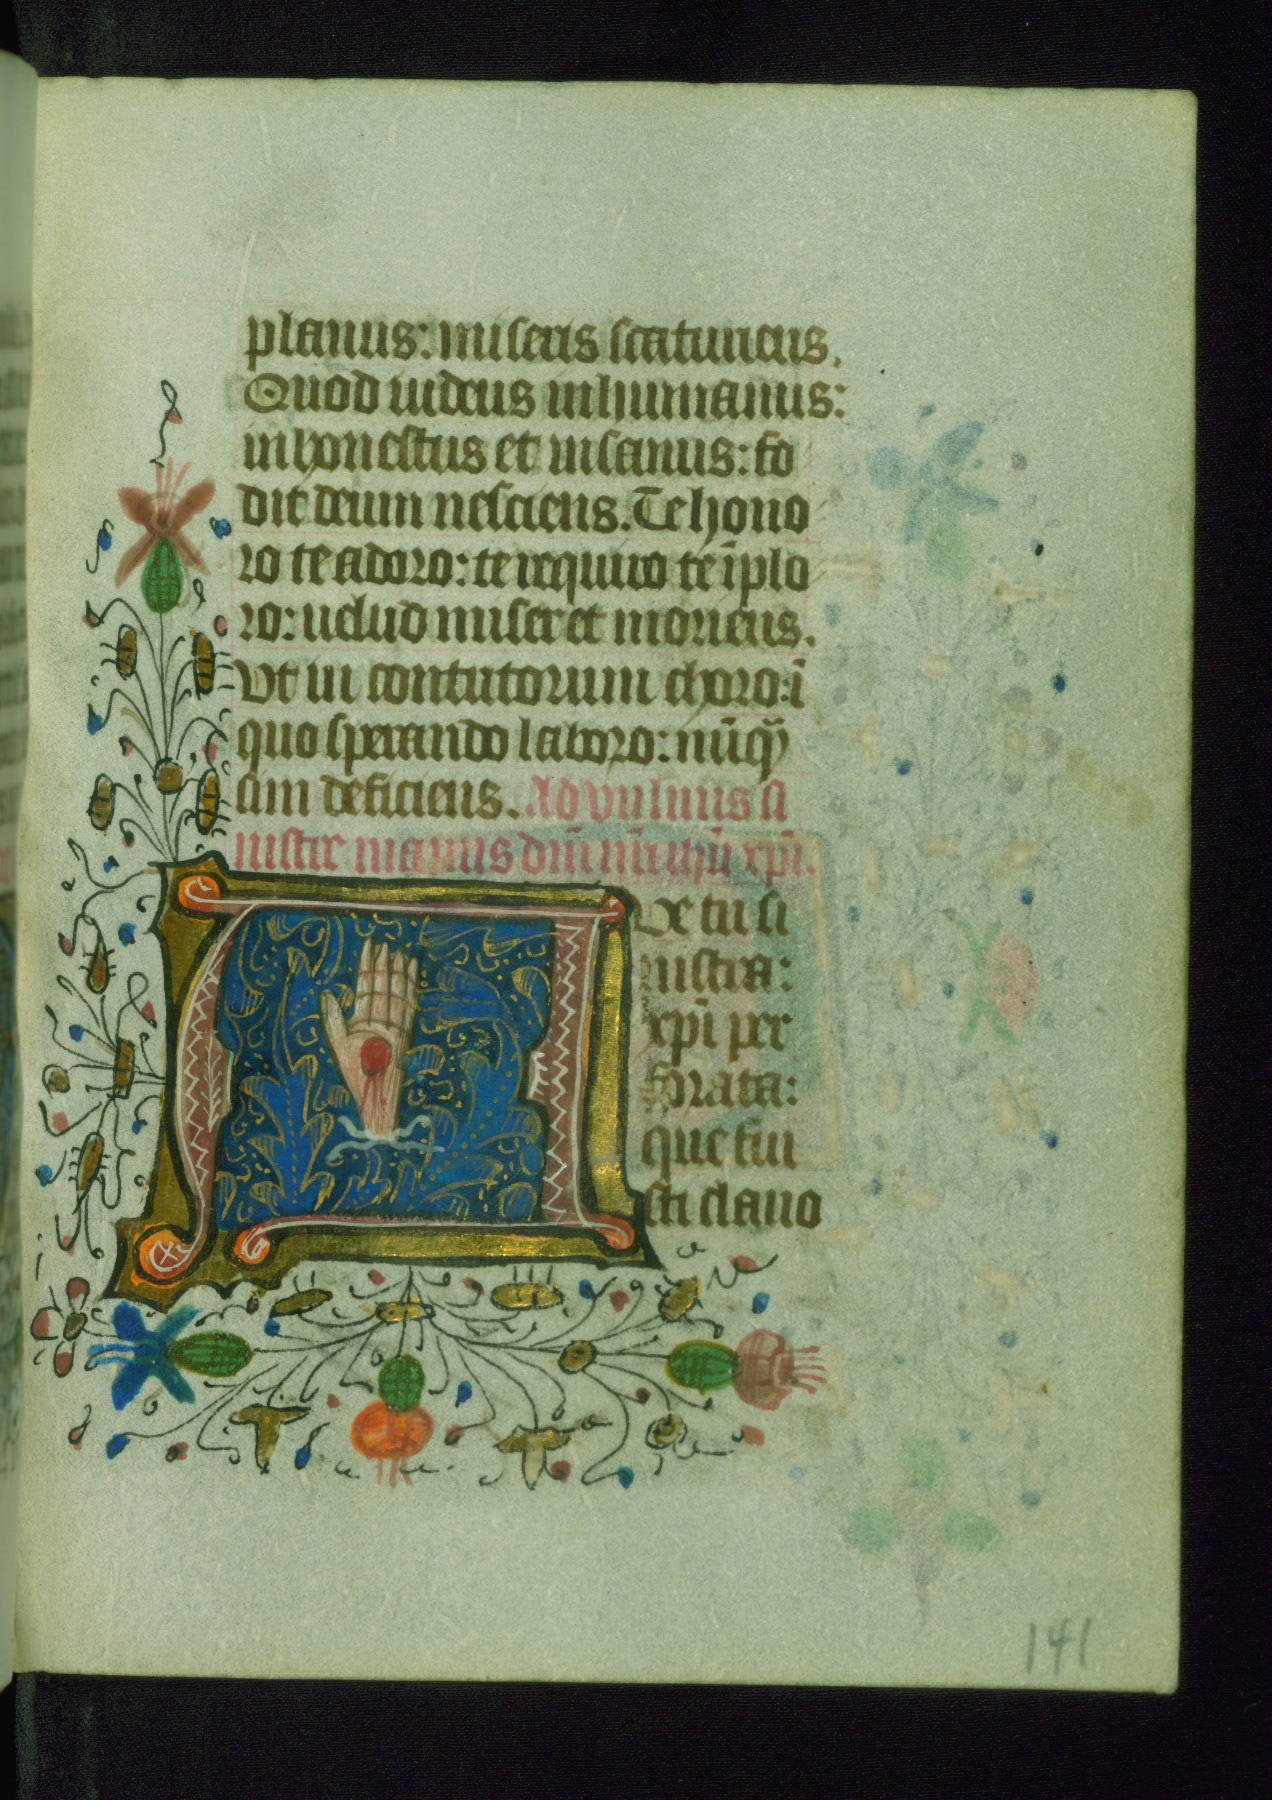 planus: miseris scaturiens.
Quod iudeus inhumanus:
inhonestus et insanus: fo
dit deum nesciens. Te hono
ro te adoro: te requiro te īplo
ro: uelud miser et moriens.
Vt in contutorum choro: ī
quo sperando laboro: nūqȝ
sim deficiens. Ad vulnus si
nistre manus dnī nrī ihū xpī.
Ue tu si
nistra:
xpī per
forata:
que fui
sti clauo
141